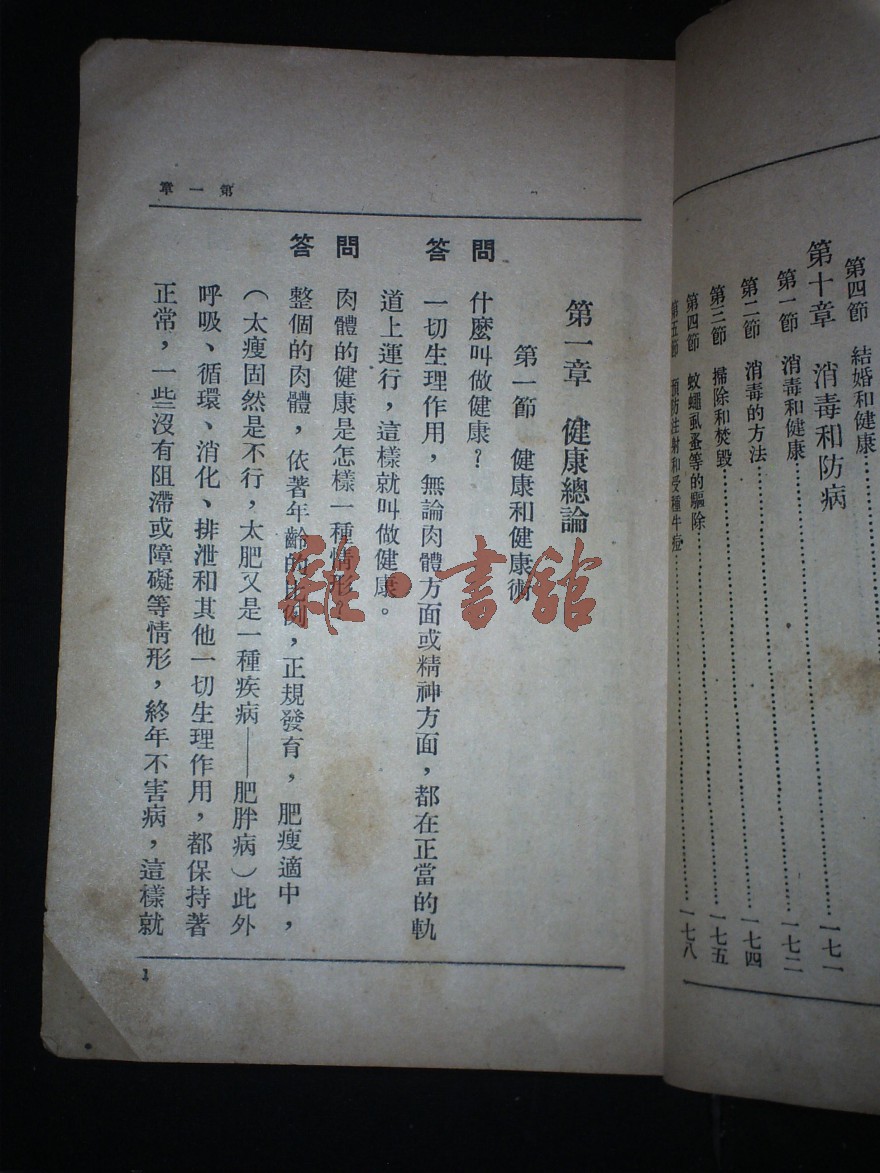 第四節　結婚和健康
第十章　消毒和防病……一七一
第一節　消毒和健康……一七二
第二節　消毒的方法……一七四
第三節　掃除和焚毀……一七五
第四節　蚊蠅虱蚤等的驅除
第五節　預防注射和受種牛痘……一七八
第一章
第一章　健康總論
第一節　健康和健康術
問　什麼叫做健康？
答　一切生理作用，無論肉體方面或精神方面，都在正當的軌
道上運行，這樣就叫做健康。
問　肉體的健康是怎樣一種情形？
答　整個的肉體，依著年齡的比例，正規發育，肥瘦適中，
（太瘦固然是不行，太肥又是一種疾病——肥胖病）此外
呼吸、循環、消化、排泄和其他一切生理作用，都保持著
正常，一些沒有阻滯或障礙等情形，終年不害病，這樣就
1
雜·書館